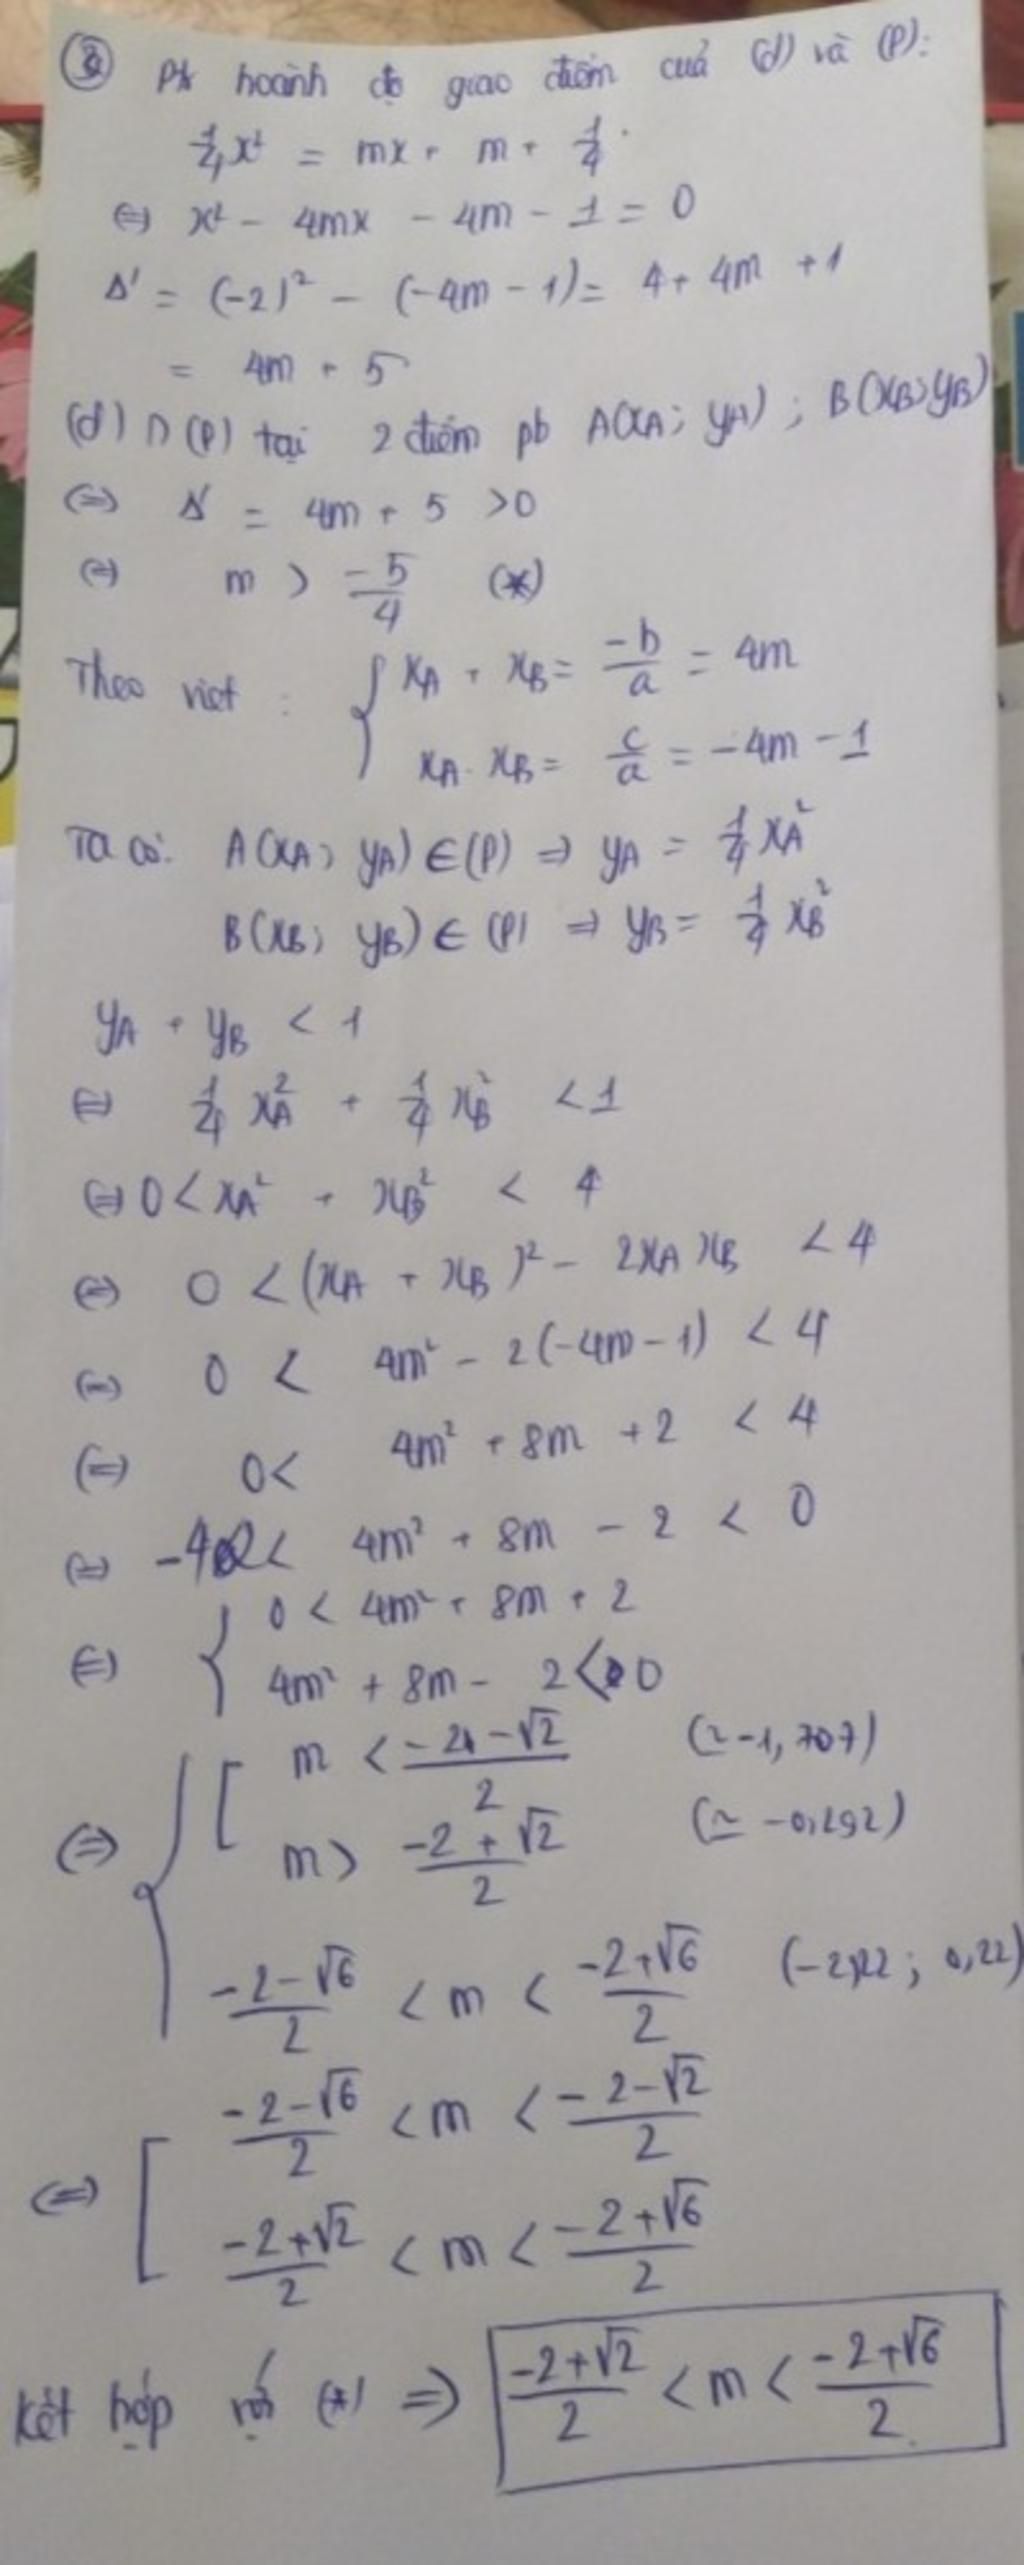 ③ Pt hoành độ giao điểm của (d) và (P):
1/4 x² = mx + m + 1/4.
⇔ x² - 4mx - 4m - 1 = 0
Δ' = (-2)² - (-4m - 1) = 4 + 4m + 1
= 4m + 5
(d) ∩ (P) tại 2 điểm pb A(xA; yA); B(xB; yB)
⇔ Δ' = 4m + 5 > 0
⇔ m > -5/4 (*)
Theo viet: { xA + xB = -b/a = 4m
xA . xB = c/a = -4m - 1
Ta có: A(xA; yA) ∈ (P) ⇒ yA = 1/4 xA²
B(xB; yB) ∈ (P) ⇒ yB = 1/4 xB²
yA + yB < 1
⇔ 1/4 xA² + 1/4 xB² < 1
⇔ 0 < xA² + xB² < 4
⇔ 0 < (xA + xB)² - 2xA xB < 4
⇔ 0 < 4m² - 2(-4m - 1) < 4
⇔ 0 < 4m² + 8m + 2 < 4
⇔ -4 < 4m² + 8m - 2 < 0
⇔ { 0 < 4m² + 8m + 2
4m² + 8m - 2 < 0
⇔ { [ m < (-2 - √2)/2 (≃ -1,707)
m > (-2 + √2)/2 (≃ -0,292)
(-2 - √6)/2 < m < (-2 + √6)/2 (-2,22; 0,22)
⇔ [ (-2 - √6)/2 < m < (-2 - √2)/2
(-2 + √2)/2 < m < (-2 + √6)/2
Kết hợp với (*) ⇒ (-2 + √2)/2 < m < (-2 + √6)/2